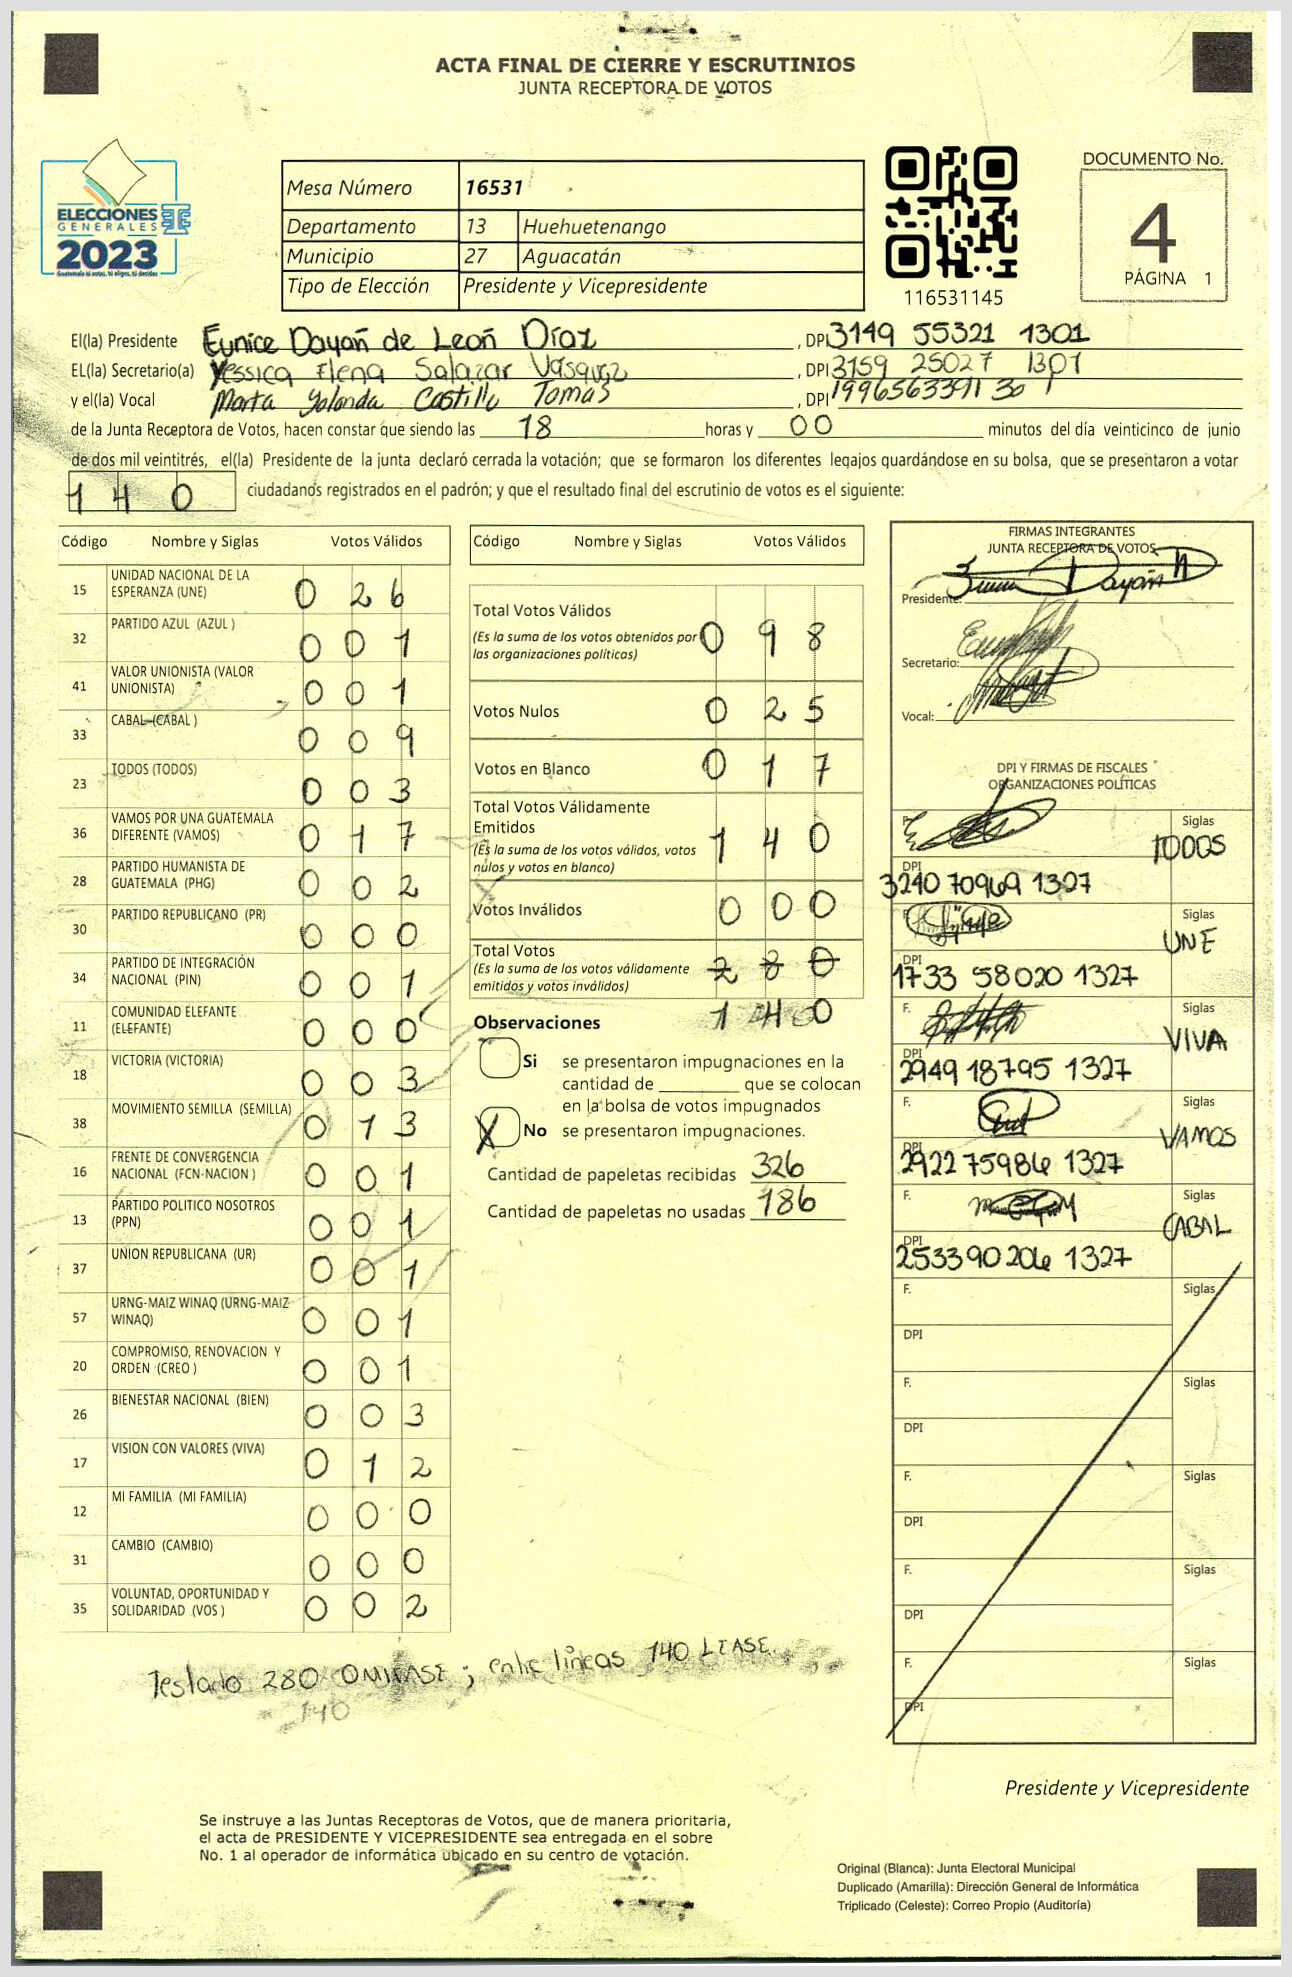 ACTA FINAL DE CIERRE Y ESCRUTINIOS
JUNTA RECEPTORA DE VOTOS
ELECCIONES
GENERALES
2023
Guatemala tú votas, tú eliges, tú decides
Mesa Número 16531
Departamento 13 Huehuetenango
Municipio 27 Aguacatán
Tipo de Elección Presidente y Vicepresidente
116531145
DOCUMENTO No.
4
PÁGINA 1
El(la) Presidente Eunice Dayan de León Díaz, DPI 3149 55321 1301
EL(la) Secretario(a) Yessica Elena Salazar Vásquez, DPI 3159 25027 1301
y el(la) Vocal Marta Yolanda Castillo Tomas, DPI
de la Junta Receptora de Votos, hacen constar que siendo las 18 horas y 00 minutos del día veinticinco de junio
de dos mil veintitrés, el(la) Presidente de la junta declaró cerrada la votación; que se formaron los diferentes legajos guardándose en su bolsa, que se presentaron a votar
140 ciudadanos registrados en el padrón; y que el resultado final del escrutinio de votos es el siguiente:
Código Nombre y Siglas Votos Válidos
15 UNIDAD NACIONAL DE LA ESPERANZA (UNE) 026
32 PARTIDO AZUL (AZUL ) 001
41 VALOR UNIONISTA (VALOR UNIONISTA) 001
33 CABAL (CABAL ) 009
23 TODOS (TODOS) 003
36 VAMOS POR UNA GUATEMALA DIFERENTE (VAMOS) 017
28 PARTIDO HUMANISTA DE GUATEMALA (PHG) 002
30 PARTIDO REPUBLICANO (PR) 000
34 PARTIDO DE INTEGRACIÓN NACIONAL (PIN) 001
11 COMUNIDAD ELEFANTE (ELEFANTE) 000
18 VICTORIA (VICTORIA) 003
38 MOVIMIENTO SEMILLA (SEMILLA) 013
16 FRENTE DE CONVERGENCIA NACIONAL (FCN-NACION ) 001
13 PARTIDO POLITICO NOSOTROS (PPN) 001
37 UNION REPUBLICANA (UR) 001
57 URNG-MAIZ WINAQ (URNG-MAIZ WINAQ) 001
20 COMPROMISO, RENOVACION Y ORDEN (CREO ) 001
26 BIENESTAR NACIONAL (BIEN) 003
17 VISION CON VALORES (VIVA) 012
12 MI FAMILIA (MI FAMILIA) 000
31 CAMBIO (CAMBIO) 000
35 VOLUNTAD, OPORTUNIDAD Y SOLIDARIDAD (VOS ) 002
Código Nombre y Siglas Votos Válidos
Total Votos Válidos 098
(Es la suma de los votos obtenidos por
las organizaciones políticas)
Votos Nulos 025
Votos en Blanco 017
Total Votos Válidamente
Emitidos 140
(Es la suma de los votos válidos, votos
nulos y votos en blanco)
Votos Inválidos 000
Total Votos 280
(Es la suma de los votos válidamente
emitidos y votos inválidos)
140
Observaciones
Si se presentaron impugnaciones en la
cantidad de ________ que se colocan
en la bolsa de votos impugnados
X No se presentaron impugnaciones.
Cantidad de papeletas recibidas 326
Cantidad de papeletas no usadas 186
FIRMAS INTEGRANTES
JUNTA RECEPTORA DE VOTOS
Presidente:
Secretario:
Vocal:
DPI Y FIRMAS DE FISCALES
ORGANIZACIONES POLÍTICAS
F. Siglas TODOS
DPI 3240 70969 1327
F. Siglas UNE
DPI 1733 58020 1327
F. Siglas VIVA
DPI 2949 18795 1327
F. Siglas VAMOS
DPI 2922 75986 1327
F. Siglas CABAL
DPI 2533 90206 1327
F. Siglas
DPI
F. Siglas
DPI
F. Siglas
DPI
F. Siglas
DPI
F. Siglas
DPI
Testado 280 OMITASE; entre líneas 140 LEASE.
140
Presidente y Vicepresidente
Se instruye a las Juntas Receptoras de Votos, que de manera prioritaria,
el acta de PRESIDENTE Y VICEPRESIDENTE sea entregada en el sobre
No. 1 al operador de informática ubicado en su centro de votación.
Original (Blanca): Junta Electoral Municipal
Duplicado (Amarilla): Dirección General de Informática
Triplicado (Celeste): Correo Propio (Auditoría)